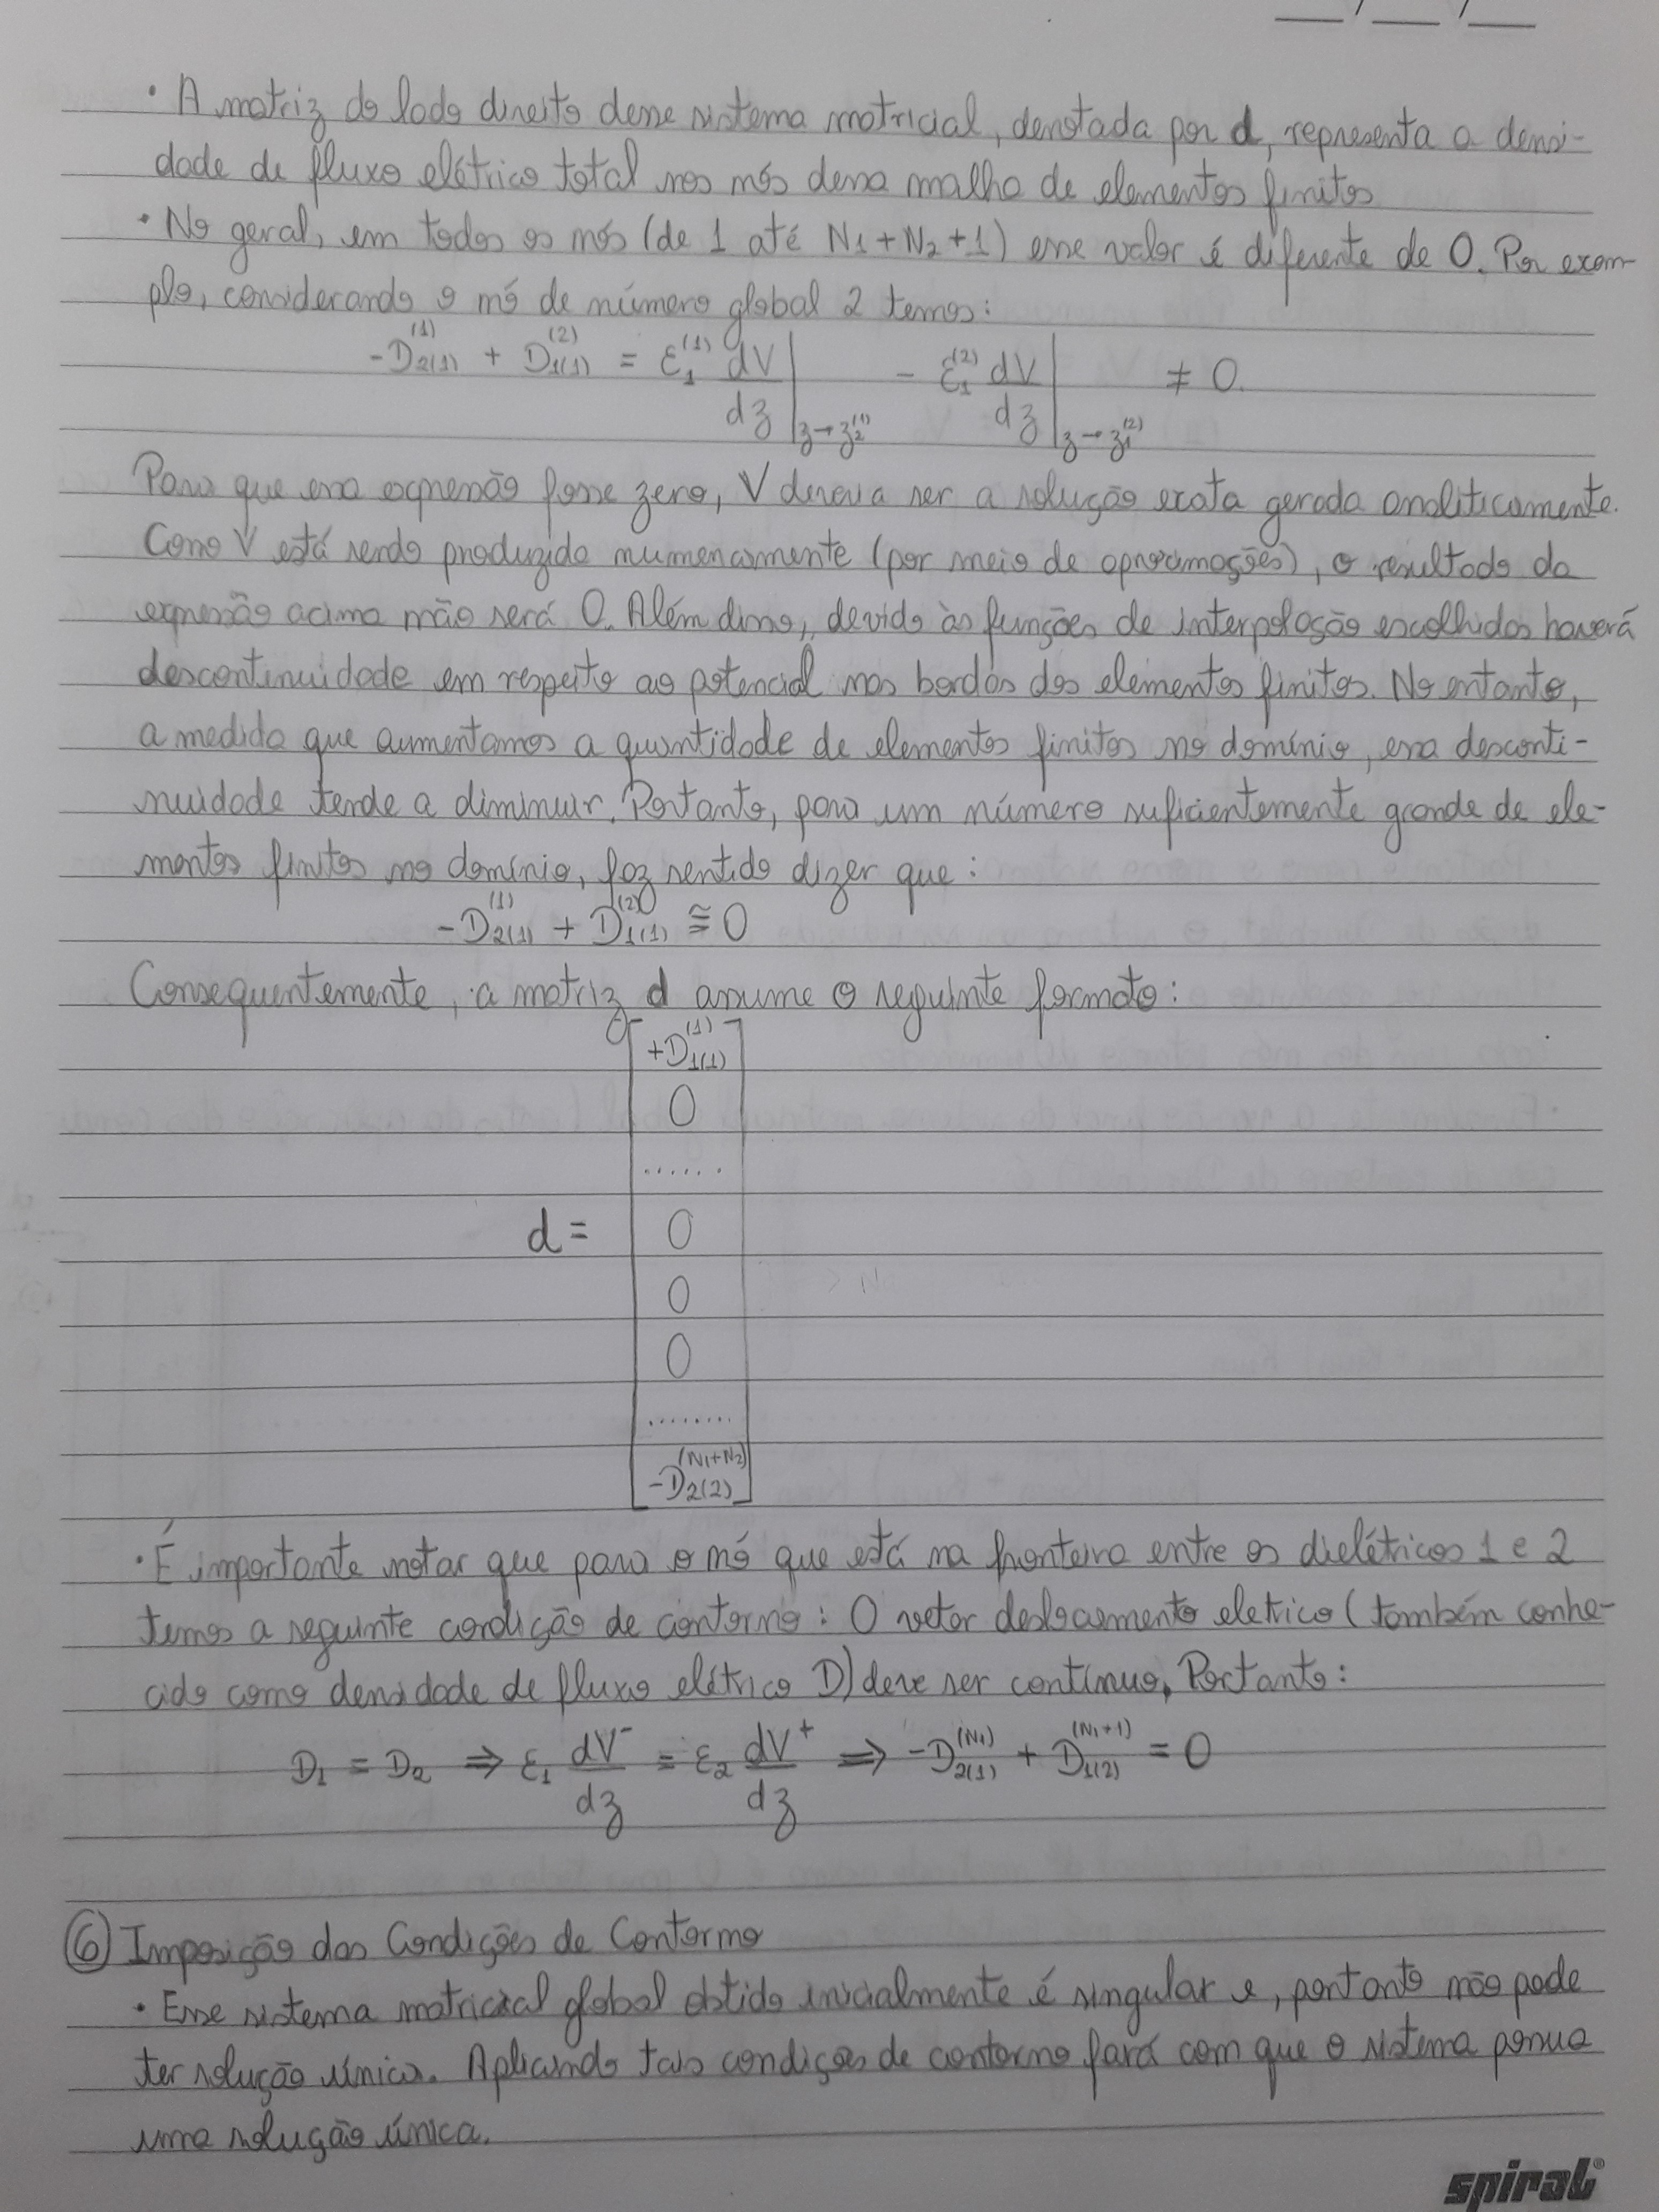 ___/___/___
• A matriz do lado direito desse sistema matricial, denotada por d, representa a densi-
dade de fluxo elétrico total nos nós dessa malha de elementos finitos
• No geral, em todos os nós (de 1 até N₁+N₂+1) esse valor é diferente de 0. Por exem-
plo, considerando o nó de número global 2 temos:
-D₂₍₁₎⁽¹⁾ + D₁₍₁₎⁽²⁾ = ε₁⁽¹⁾ dV/dz |z→z₂⁽¹⁾ - ε₁⁽²⁾ dV/dz |z→z₁⁽²⁾ ≠ 0.
Para que essa expressão fosse zero, V deveria ser a solução exata gerada analiticamente.
Como V está sendo produzido numericamente (por meio de aproximações), o resultado da
expressão acima não será 0. Além disso, devido às funções de interpolação escolhidas haverá
descontinuidade em respeito ao potencial nas bordas dos elementos finitos. No entanto,
a medida que aumentamos a quantidade de elementos finitos no domínio, essa desconti-
nuidade tende a diminuir. Portanto, para um número suficientemente grande de ele-
mentos finitos no domínio, faz sentido dizer que:
-D₂₍₁₎⁽¹⁾ + D₁₍₁₎⁽²⁾ ≅ 0
Consequentemente, a matriz d assume o seguinte formato:
+D₁₍₁₎⁽¹⁾
0
......
d = 0
0
0
........
-D₂₍₂₎⁽ᴺ¹⁺ᴺ²⁾
• É importante notar que para o nó que está na fronteira entre os dielétricos 1 e 2
temos a seguinte condição de contorno: O vetor deslocamento eletrico (também conhe-
cido como densidade de fluxo elétrico D) deve ser contínuo. Portanto:
D₁ = D₂ ⇒ ε₁ dV⁻/dz = ε₂ dV⁺/dz ⇒ -D₂₍₁₎⁽ᴺ¹⁾ + D₁₍₂₎⁽ᴺ¹⁺¹⁾ = 0
⑥ Imposição das Condições de Contorno
• Esse sistema matricial global obtido inicialmente é singular e, portanto não pode
ter solução única. Aplicando tais condições de contorno fará com que o sistema possua
uma solução única.
spiral®